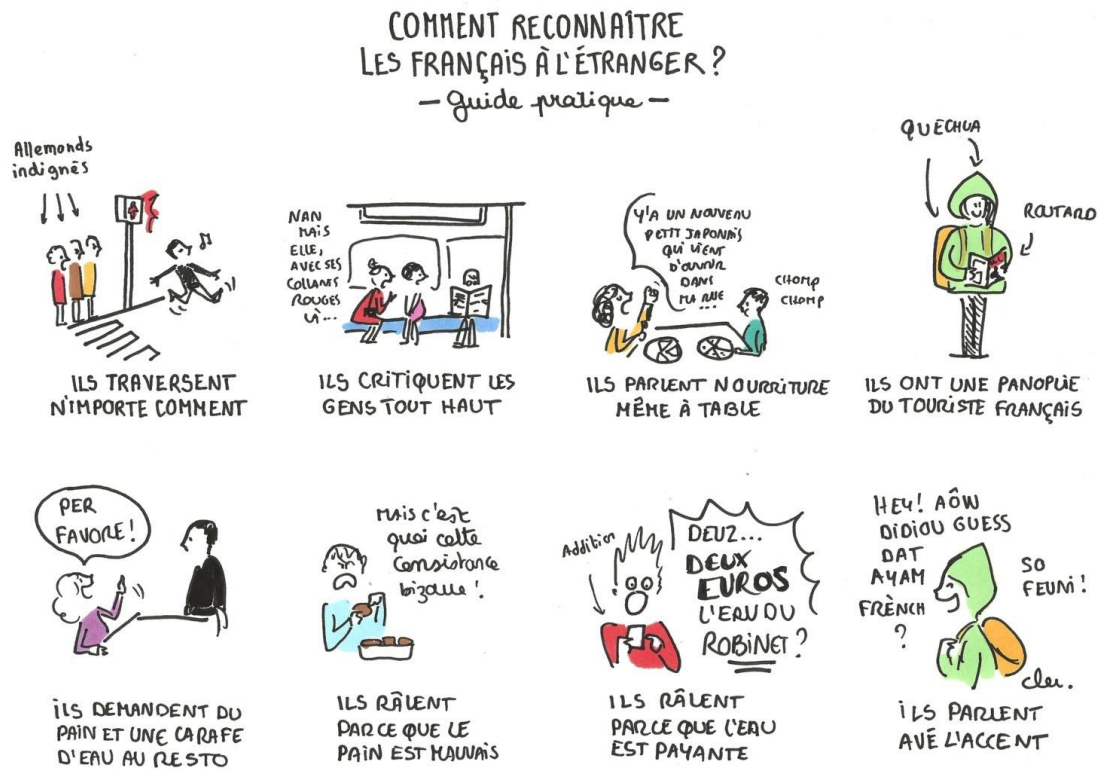 COMMENT RECONNAÎTRE
LES FRANÇAIS À L'ÉTRANGER ?
— Guide pratique —
Allemands
indignés
ILS TRAVERSENT
N'IMPORTE COMMENT
NAN
MAIS
ELLE,
AVEC SES
COLLANTS
ROUGES
LÀ...
ILS CRITIQUENT LES
GENS TOUT HAUT
Y'A UN NOUVEAU
PETIT JAPONAIS
QUI VIENT
D'OUVRIR
DANS
MA RUE
...
CHOMP
CHOMP
ILS PARLENT NOURRITURE
MÊME À TABLE
QUECHUA
ROUTARD
ILS ONT UNE PANOPLIE
DU TOURISTE FRANÇAIS
PER
FAVORE !
ILS DEMANDENT DU
PAIN ET UNE CARAFE
D'EAU AU RESTO
MAIS c'est
quoi cette
consistance
bizarre !
ILS RÂLENT
PARCE QUE LE
PAIN EST MAUVAIS
Addition
DEUZ...
DEUX
EUROS
L'EAU DU
ROBINET ?
ILS RÂLENT
PARCE QUE L'EAU
EST PAYANTE
HEY! AÔW
DIDIOU GUESS
DAT
AYAM
FRÈNCH
?
SO
FEUNI !
cler.
ILS PARLENT
AVÉ L'ACCENT